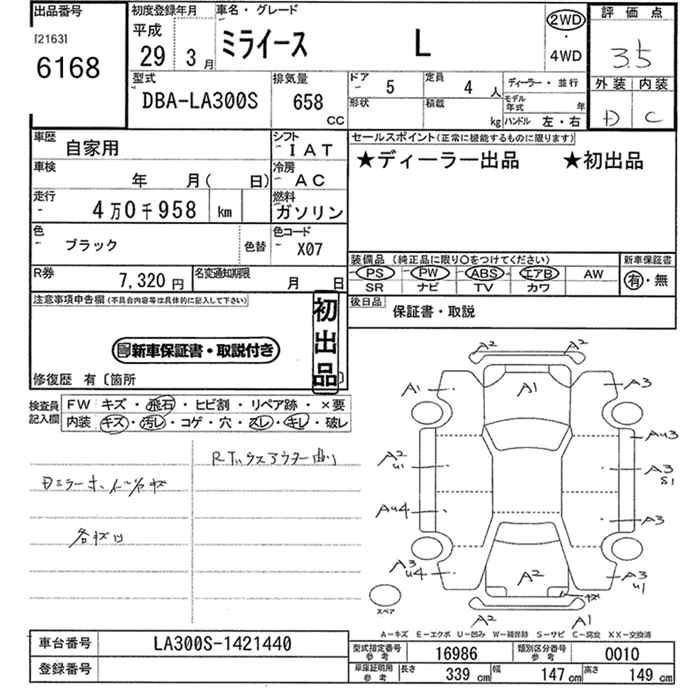 出品番号
[2163]
6168
初度登録年月
平成
29 3 月
車名・グレード
ミライース L
2WD
・
4WD
評価点
3.5
外装 内装
D C
型式
DBA-LA300S
排気量
658
CC
ドア 5
定員 4 人
形状
積載 kg
ディーラー・並行
モデル年式 年
ハンドル 左・右
車歴 自家用
シフト IAT
セールスポイント(正常に機能するものに限ります)
★ディーラー出品 ★初出品
車検 年 月( 日)
冷房 AC
走行 4万0千958 km
燃料 ガソリン
色 ブラック 色替
色コード X07
装備品(純正品に限り○をつけてください)
PS PW ABS エアB AW
SR ナビ TV カワ
新車保証書
有・無
R券 7,320 円
名変通知期限 月 日
後日品 保証書・取説
注意事項申告欄(不具合内容等は具体的に記入して下さい)
初出品
新車保証書・取説付き
修復歴 有〔箇所 〕
検査員記入欄
FW キズ・飛石・ヒビ割・リペア跡・×要
内装 キズ・汚レ・コゲ・穴・スレ・キレ・破レ
A2 A2
A1
A1 A3
A2 U1
AU3
A3 S1
AU4
A3
A3 U4
A2
キズ
A3 U1
A2 A1
スペア
A-キズ E-エクボ U-凹み W-補修跡 S-サビ C-腐食 XX-交換済
車台番号 LA300S-1421440
登録番号
型式指定番号 参考 16986
類別区分番号 参考 0010
車庫証明用 参考 長さ 339 cm 幅 147 cm 高さ 149 cm